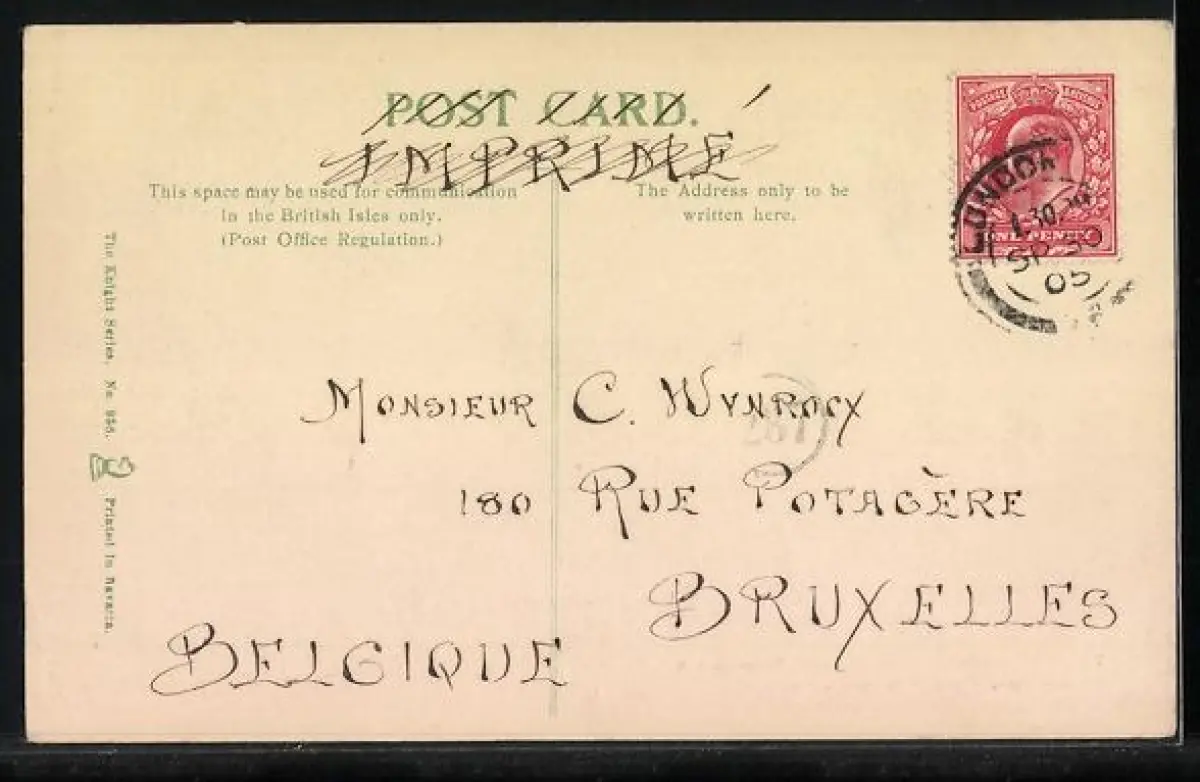 POST CARD.
IMPRIMÉ
This space may be used for communication
in the British Isles only.
(Post Office Regulation.)
The Address only to be
written here.
POSTAGE REVENUE
ONE PENNY
LONDON
SP 30
05
MONSIEUR C. WYNROCX
180 RUE POTAGÈRE
BRUXELLES
BELGIQUE
The Knight Series. No
Printed in Bavaria.